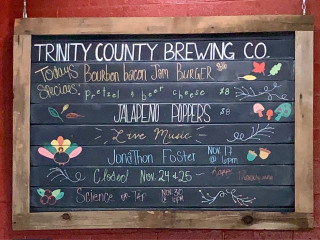 TRINITY COUNTY BREWING CO.
Todays Bourbon Bacon Jam BURGER $16
Specials: Pretzel & beer cheese $8
JALAPENO POPPERS $8
Live Music
Jonathon Foster Nov. 17 @ 6pm
Closed Nov. 24 & 25 ~ Happy Thanksgiving
Science on Tap Nov. 30 @ 6pm